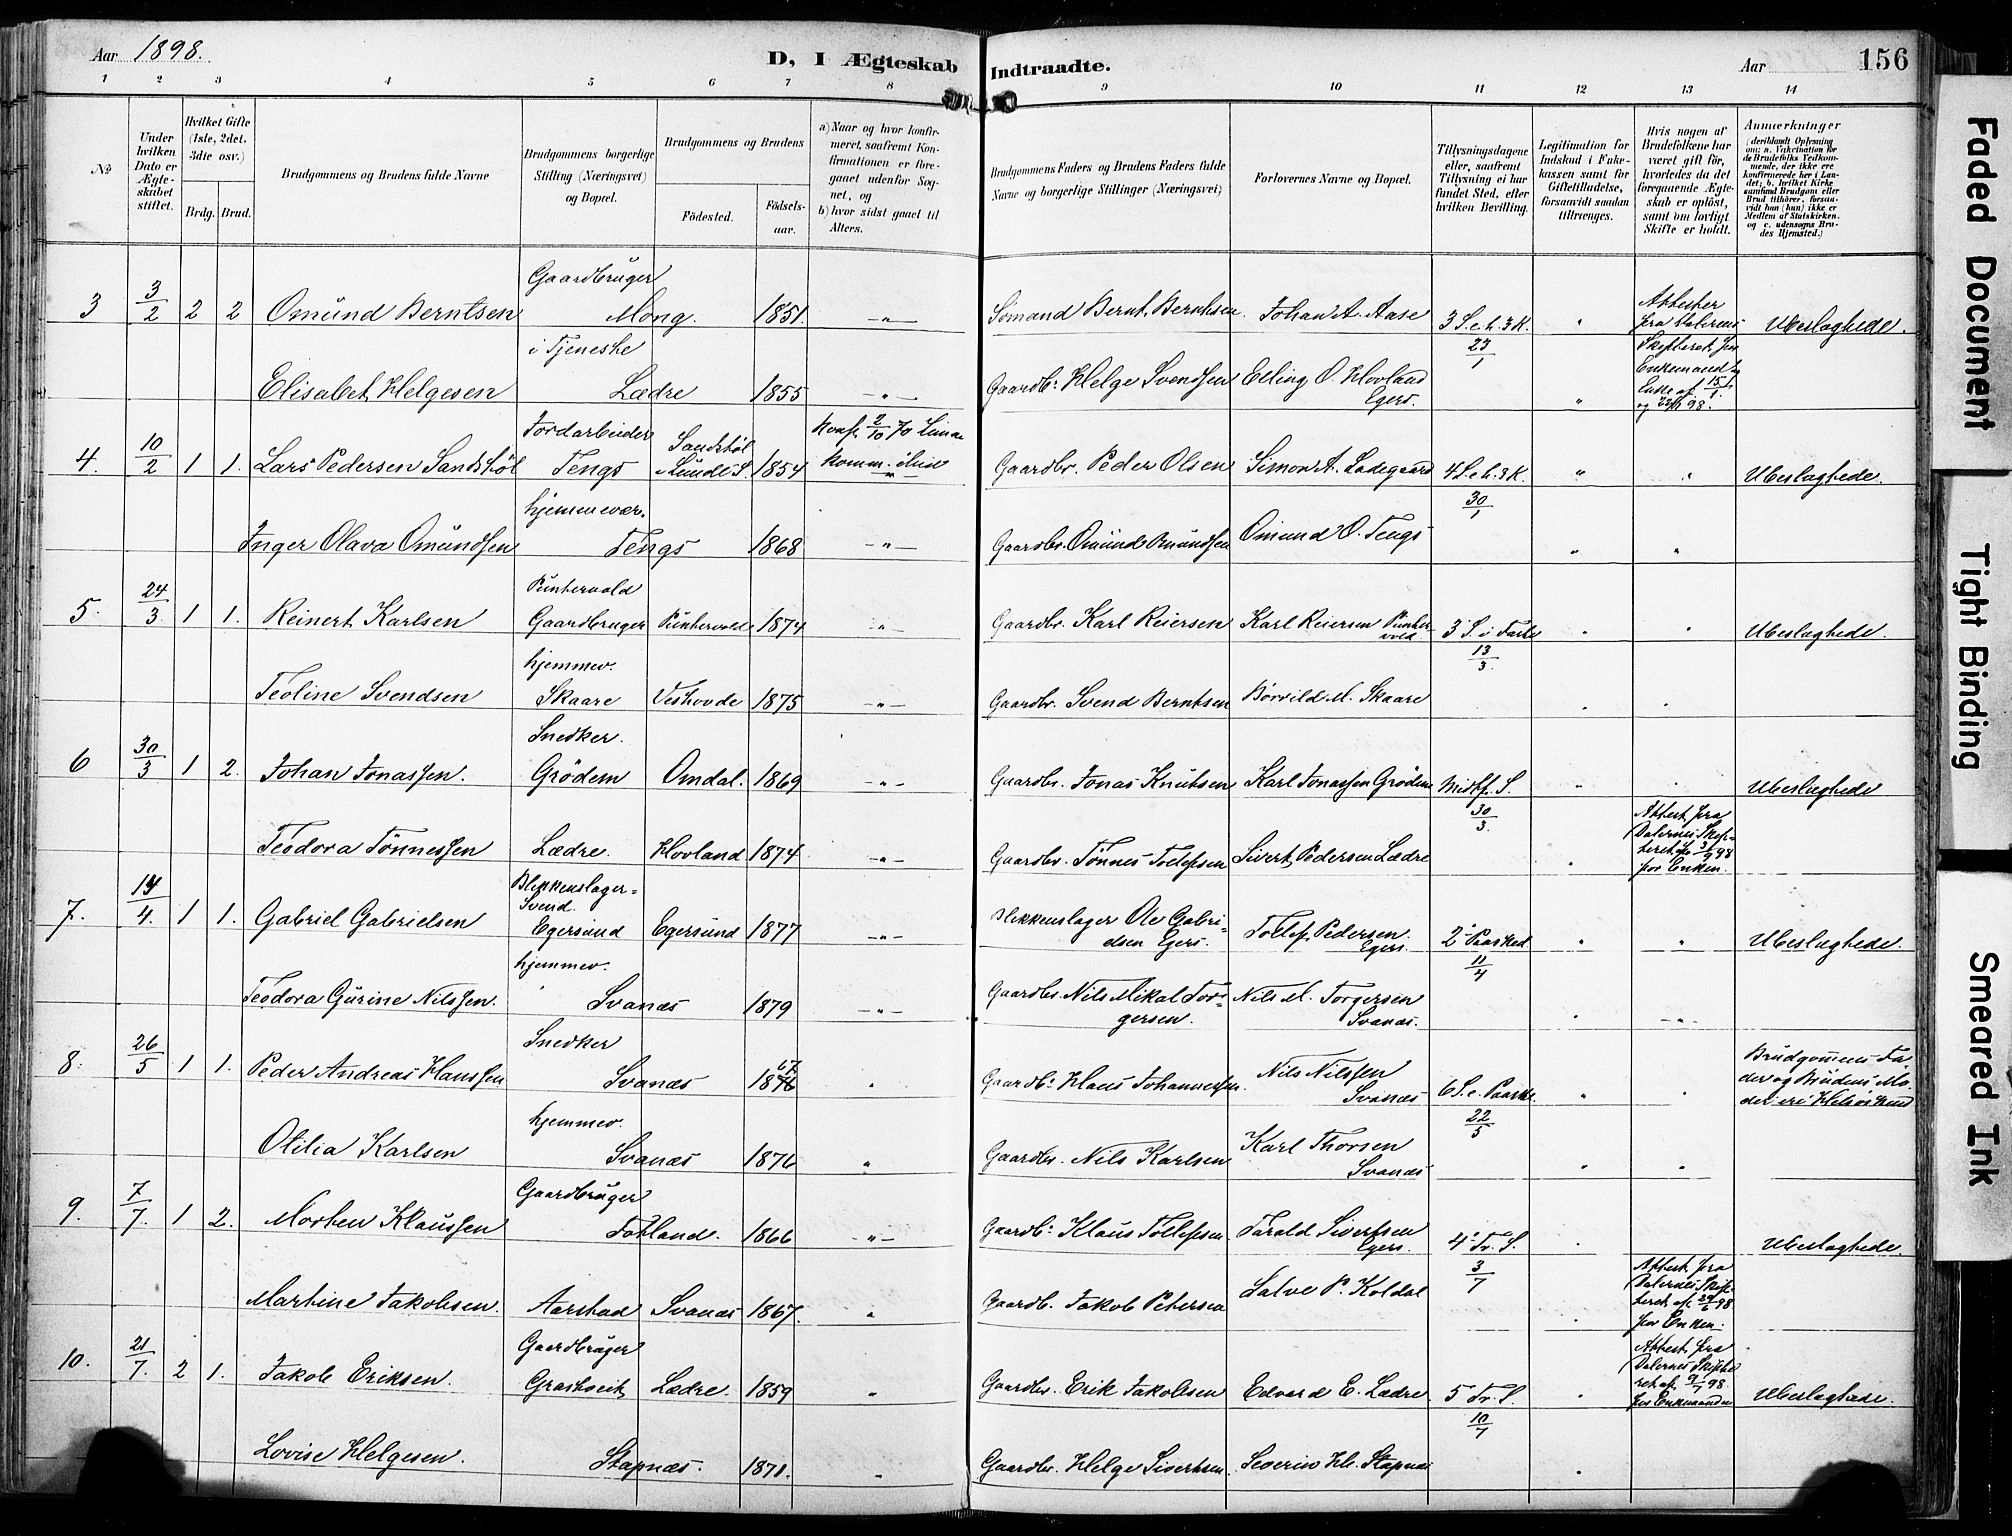 Aar 1898.
D, I Ægteskab Indtraadte.
Aar
156
1 2 3 4 5 6 7 8 9 10 11 12 13 14
No
Under hvilken Dato er Ægteskabet stiftet.
Hvilket Gifte (1ste, 2det, 3die osv.)
Brdg. Brud.
Brudgommens og Brudens fulde Navne
Brudgommens borgerlige Stilling (Næringsvei) og Bopæl.
Brudgommens og Brudens
Födested.
Födselsaar.
a) Naar og hvor konfirmeret, saafremt Konfirmationen er foregaaet udenfor Sognet, og
b) hvor sidst gaaet til Alters.
Brudgommens Faders og Brudens Faders fulde Navne og borgerlige Stillinger (Næringsvei)
Forlovernes Navne og Bopæl.
Tillysningsdagene eller, saafremt Tillysning ei har fundet Sted, efter hvilken Bevilling.
Legitimation for Indskud i Fakkassen samt for Giftetilladelse, forsaavidt saadan tiltrænges.
Hvis nogen af Brudefolkene har været gift för, hvorledes da det foregaaende Ægteskab er oplöst, samt om lovligt Skifte er holdt.
Anmærkninger
3 3/2 2 2 Omund Berntsen Gaardbruger Mong. 1851. —„— Sömand Bernt Berntsen Johan A. Aase 3 S. e. h. 3 K. 23/1 „ Ubeslægtede.
Elisabet Helgesen i Tjeneste Lædre 1855 —„— Gaardb: Helge Svendsen Elling O. Hovland Egers. „
4. 10/2 1 1. Lars Pedersen Sandstöl Jordarbeider Tengs Sandstöl Lunde S. 1854 Gaardbr. Peder Olsen Simon A. Ladegaard 4 S. e. h. 3 K. 30/1 „ „ Ubeslægtede.
Inger Olava Omundsen hjemmevær. Tengs 1868 —„— Gaardbr. Omund Omundsen Omund O. Tengs „ „
5. 24/3 1 1. Reinert Karlsen Puntervold Gaardbruger Puntervold 1874 —„— Gaardbr. Karl Reiersen Karl Reiersen Puntervold 3 S. i Faste 13/3 „ „ Ubeslægtede.
Teoline Svendsen hjemmev. Skaare Veshovde 1875 —„— Gaardbr. Svend Berntsen Börrild M. Skaare „ „
6 30/3 1 2. Johan Jonassen. Snedker. Grödem Omdal. 1869 —„— Gaardbr. Jonas Knutsen Karl Jonassen Grödem Midtf. S. 30/3 „ „ Ubeslægtede
Teodora Tönnessen Lædre. Hovland 1874 —„— Gaardbr. Tönnes Tollefsen Sivert Pedersen Lædre „ Attest fra Dalernes Skifteret for Enken.
7. 14/4. 1 1. Gabriel Gabrielsen Blikkenslager-Svend. Egersund Egersund 1877 —„— Blikkenslager Ole Gabrielsen Egers. Tollef Pedersen Egers. 2. Paasked. 11/4 „ „ Ubeslægtede.
Teodora Gurine Nilssen. hjemmev. Svanæs 1879 —„— Gaardbr. Nils Mikal Torgersen. Nils M. Torgersen Svanæs. „ —„—
8. 26/5 1 1. Peder Andreas Hanssen Snedker Svanæs „ Nils Nilssen Svanæs 6 S. e. Paaske. 22/5 „ „ Brudgommens Fader og Brudens Moder
Otilia Karlsen hjemmev. Svanæs 1876 „ Gaardbr. Nils Karlsen Karl Thorsen Svanæs „ „
9. 7/7. 1 2. Morten Klaussen Gaardbruger Fotland. 1866 —„— Gaardb: Klaus Tollefsen Tarald Sivertsen Egers. 4. Tr. S. 3/7 „ Ubeslægtede.
Martine Jakobsen. Aarstad Svanæs 1867. „ Gaardb. Jakob Petersen Salve P. Koldal „ Attest fra Dalernes Skifteret af 29/6 98 for Enken.
10. 21/7. 2 1. Jakob Eriksen. Gaardbruger Grastveit Lædre. 1859 „ Gaardbr. Erik Jakobsen Edvard E. Lædre 5 Tr. S. 10/7 „ Attest fra Dalernes Skifteret af 9/7 98. for Enkemanden Ubeslægtede.
Lovise Helgesen. Stapnæs. 1871. „ Gaardbr. Helge Sivertsen Severin H. Stapnæs „
Faded Document
Tight Binding
Smeared Ink